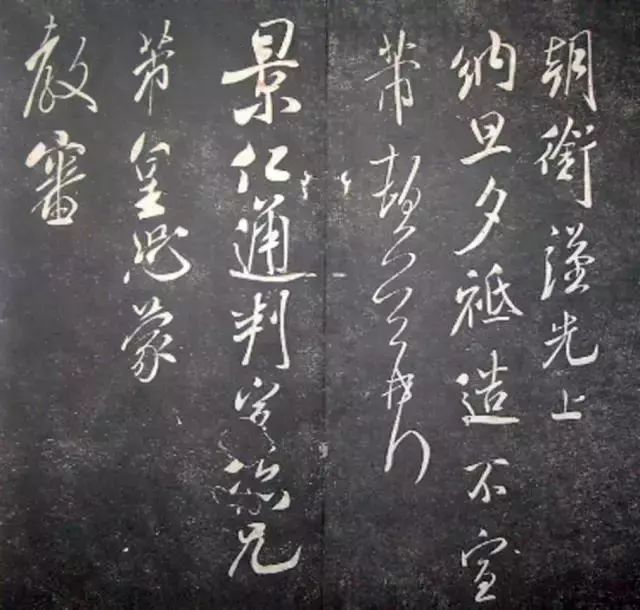 朝銜謹先上
納旦夕祗造不宣
芾頓首再拜
景仁通判兄
芾皇恐蒙
教審